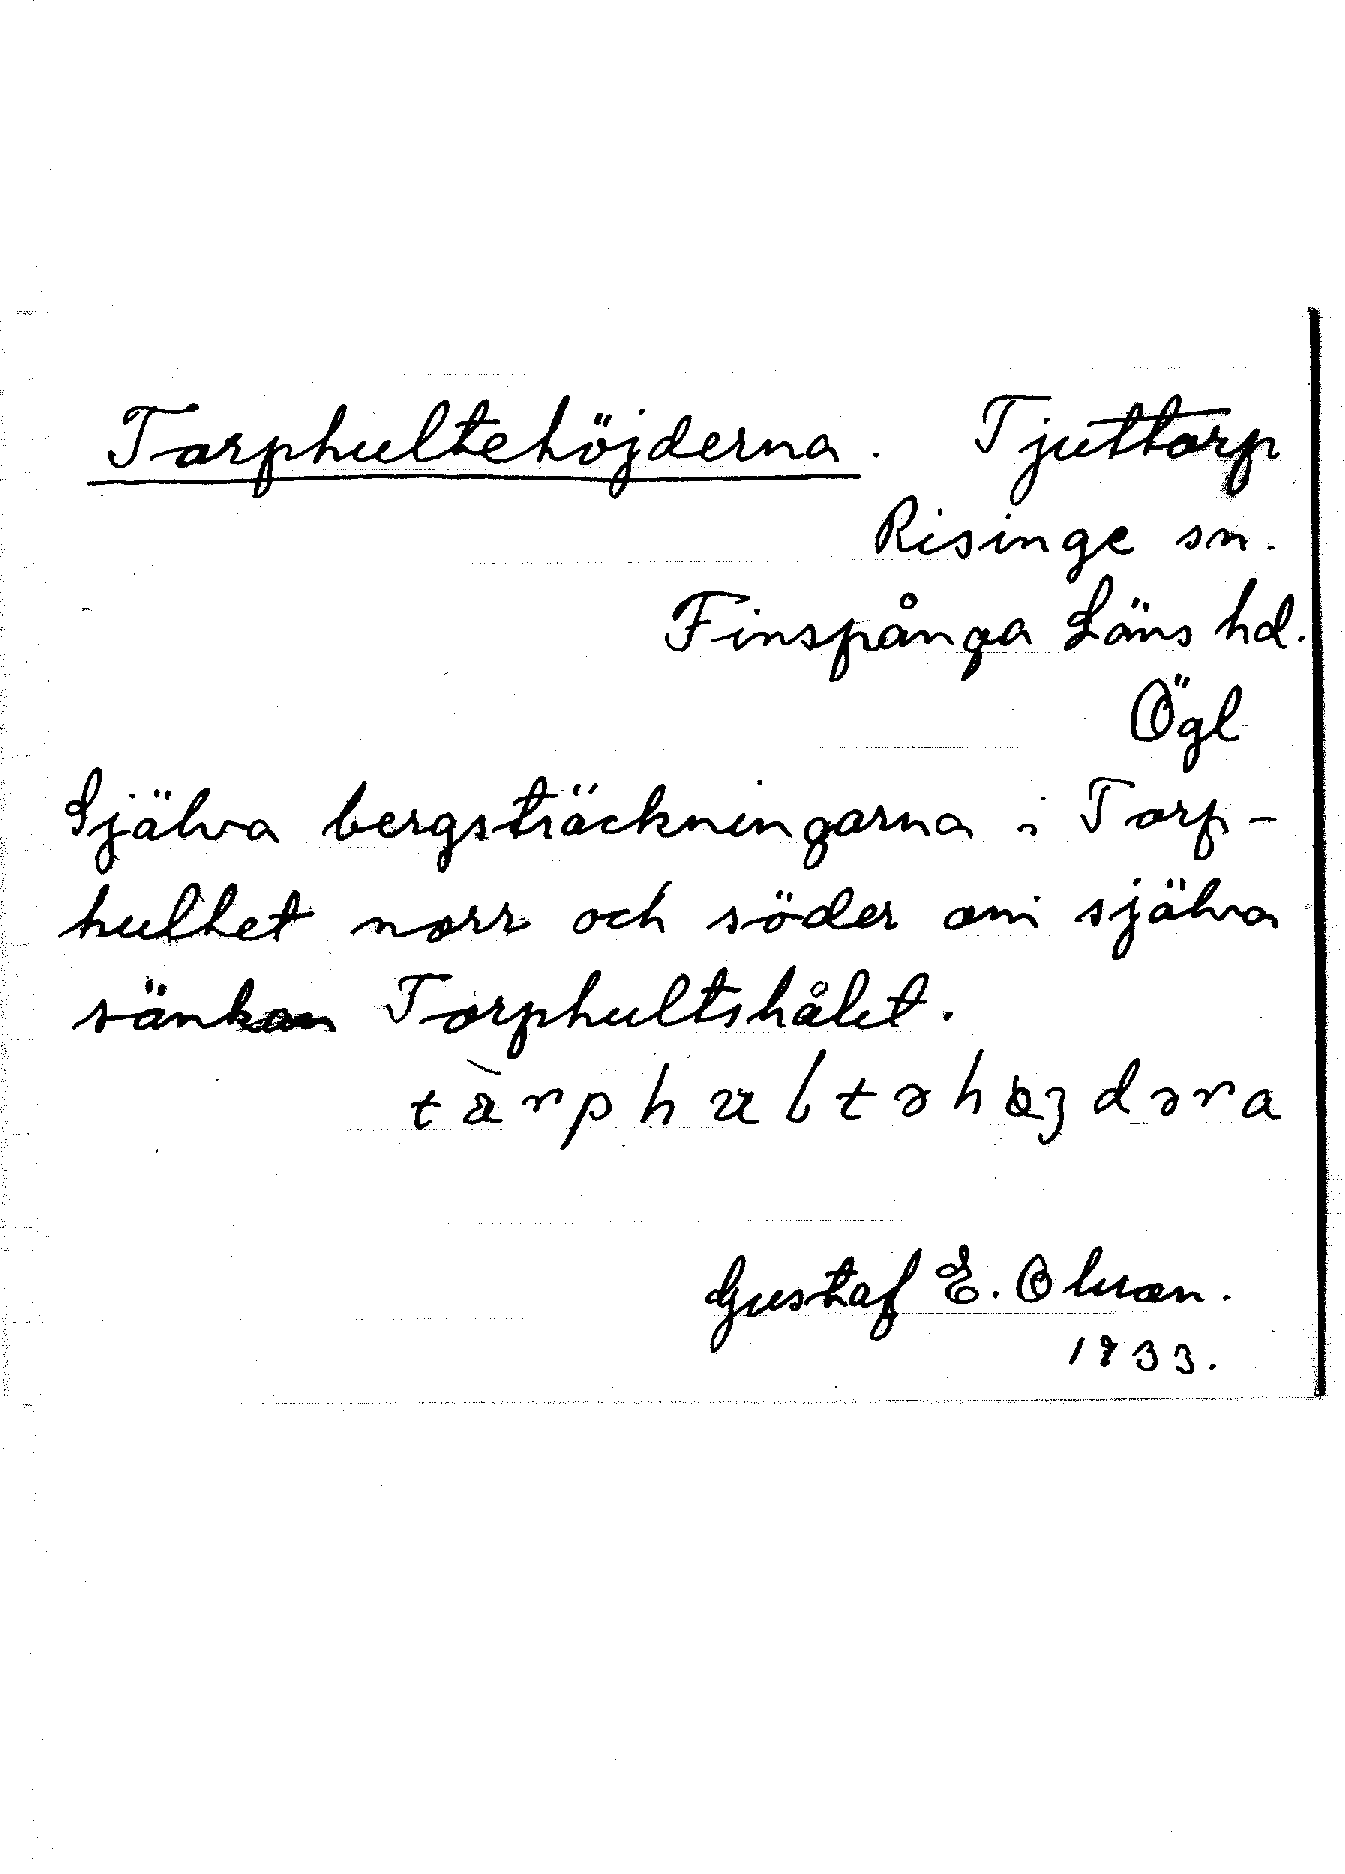 Torphultehöjderna. Tjuttorp
Risinge sn.
Finspånga Läns hd.
Ögl
Själva bergsträckningarna i Torp-
hultet norr och söder om själva
sänkan Torphultshålet.
Gustaf E. Olsson.
1933.